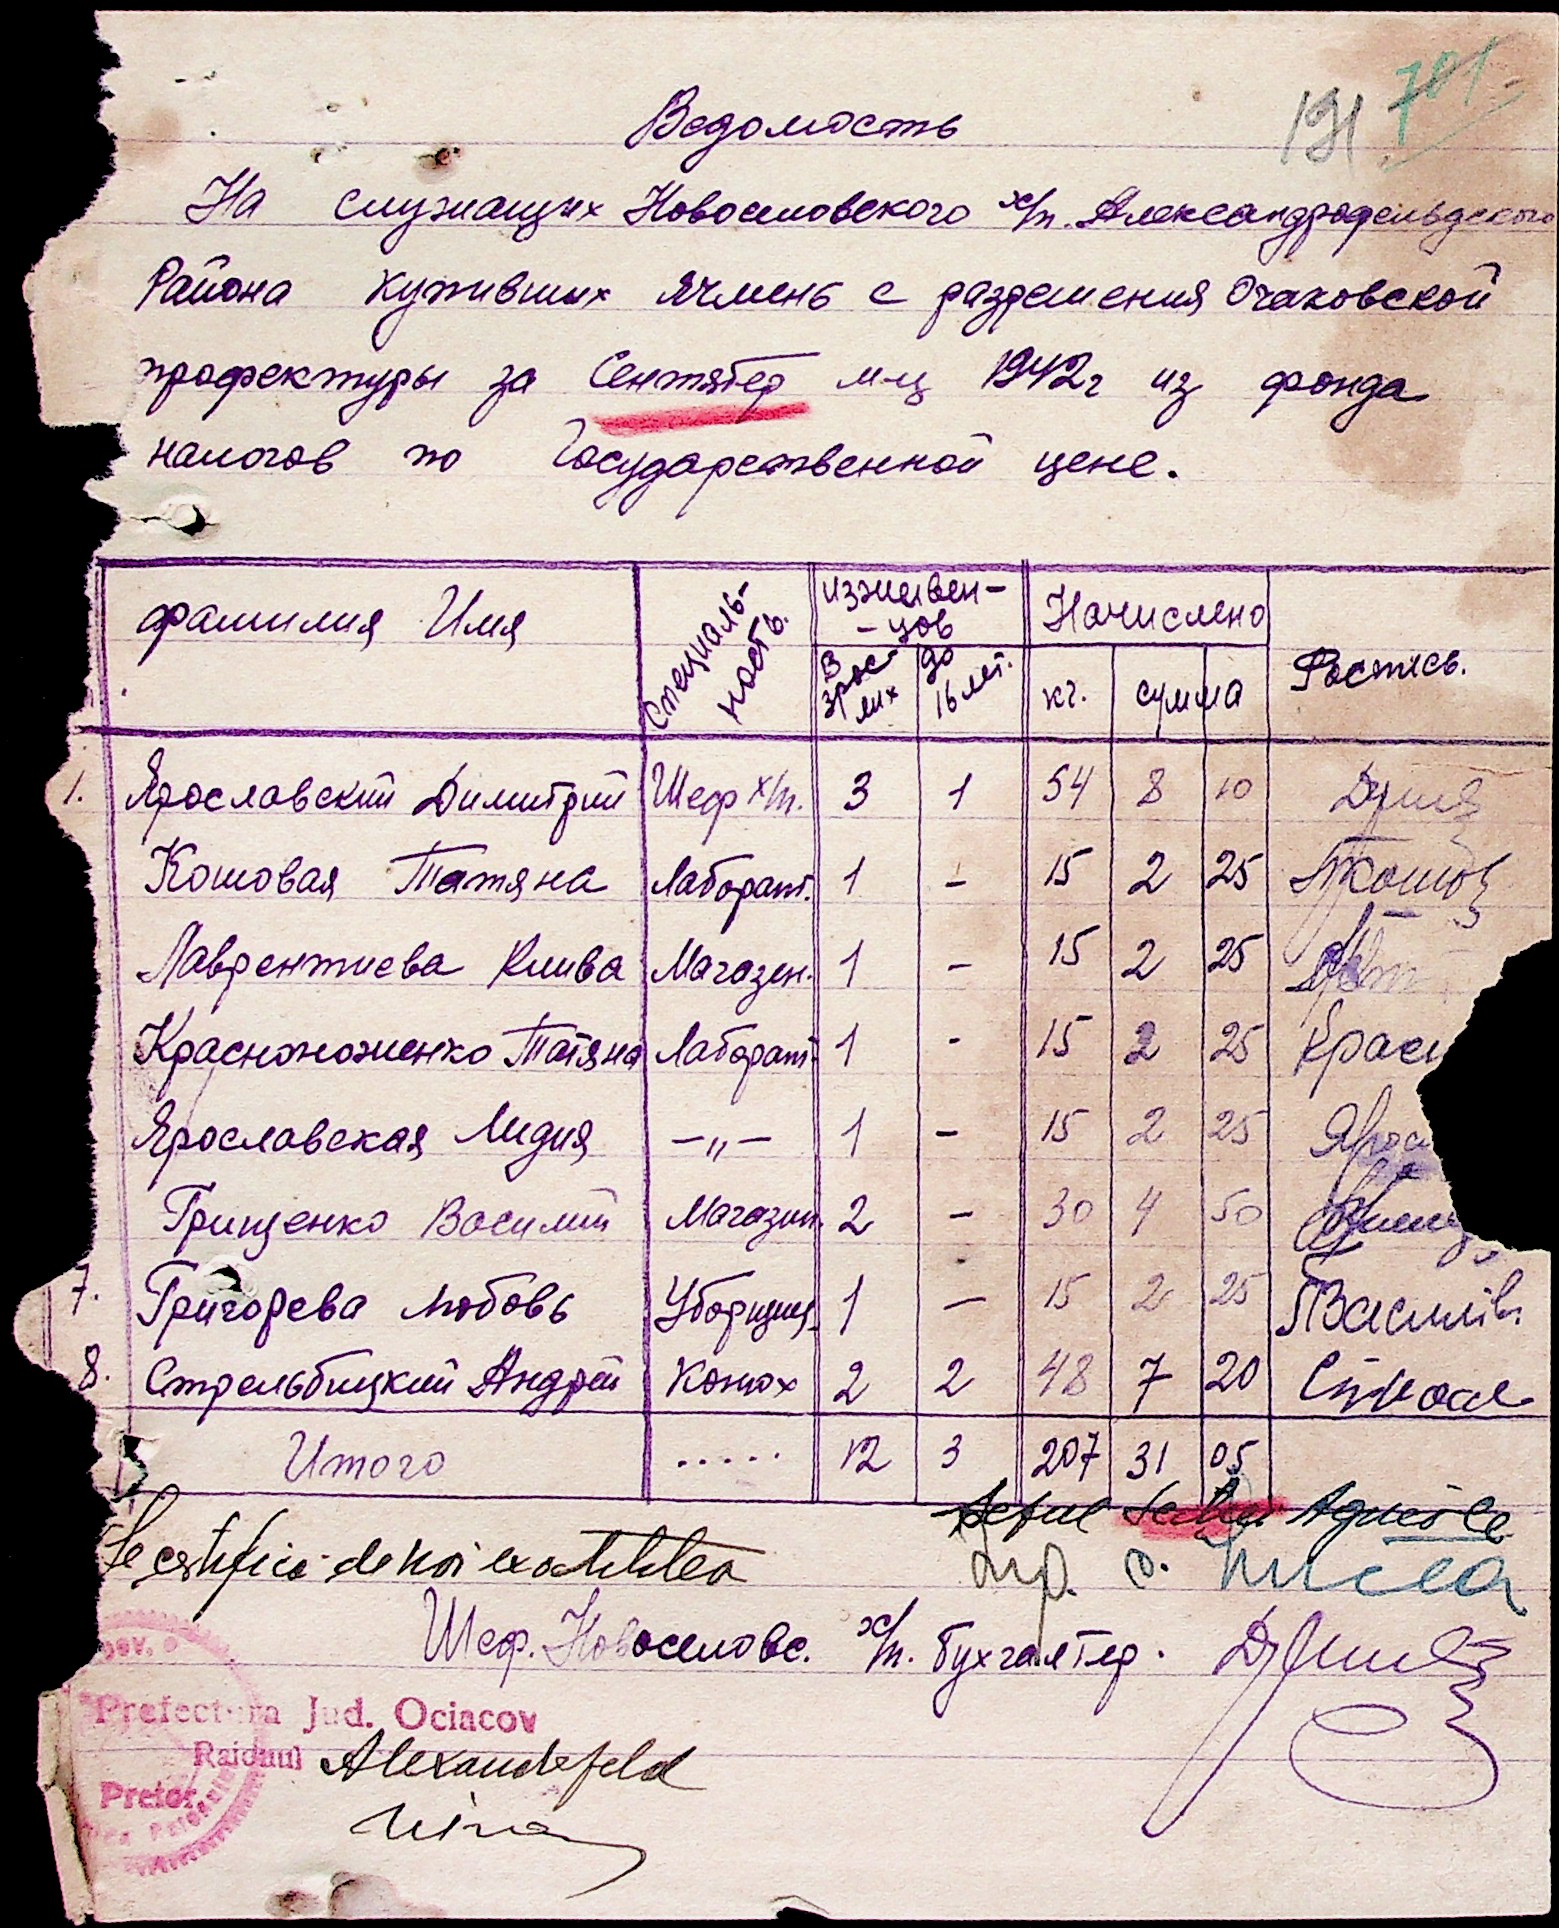 191 701
Ведомость
На служащих Новоселовского х/п. Александрофельдского
Района куживших ячмень с разрешения Очаковской
профектуры за Сентябер м-ц 1942г из фонда
налогов по Государственной цене.
фамилия Имя Специаль-ность. изжевен-цов Начислено Роспись.
Взрослих до 16 лет. кг. сумма
1. Ярославский Димитрий Шеф х/п. 3 1 54 8 10
Кошовая Татяна Лаборант. 1 - 15 2 25
Лаврентиева Клива Магазен. 1 - 15 2 25
Красноноженко Татяна Лаборант. 1 - 15 2 25 Красн
Ярославская Лидия -„- 1 - 15 2 25 Ярос
Грищенко Василий Магазин. 2 - 30 4 50
7. Григорева Любовь Уборщиця. 1 - 15 2 25
8. Стрельбицкий Андрей Конюх 2 2 48 7 20
Итого ..... 12 3 207 31 05
Agricole
Se certifică de noi exactitatea
Шеф. Новоселовс. х/п. бухгалтер.
Prefectura Jud. Ociacov
Raionul Alexandrfeld
Pretor